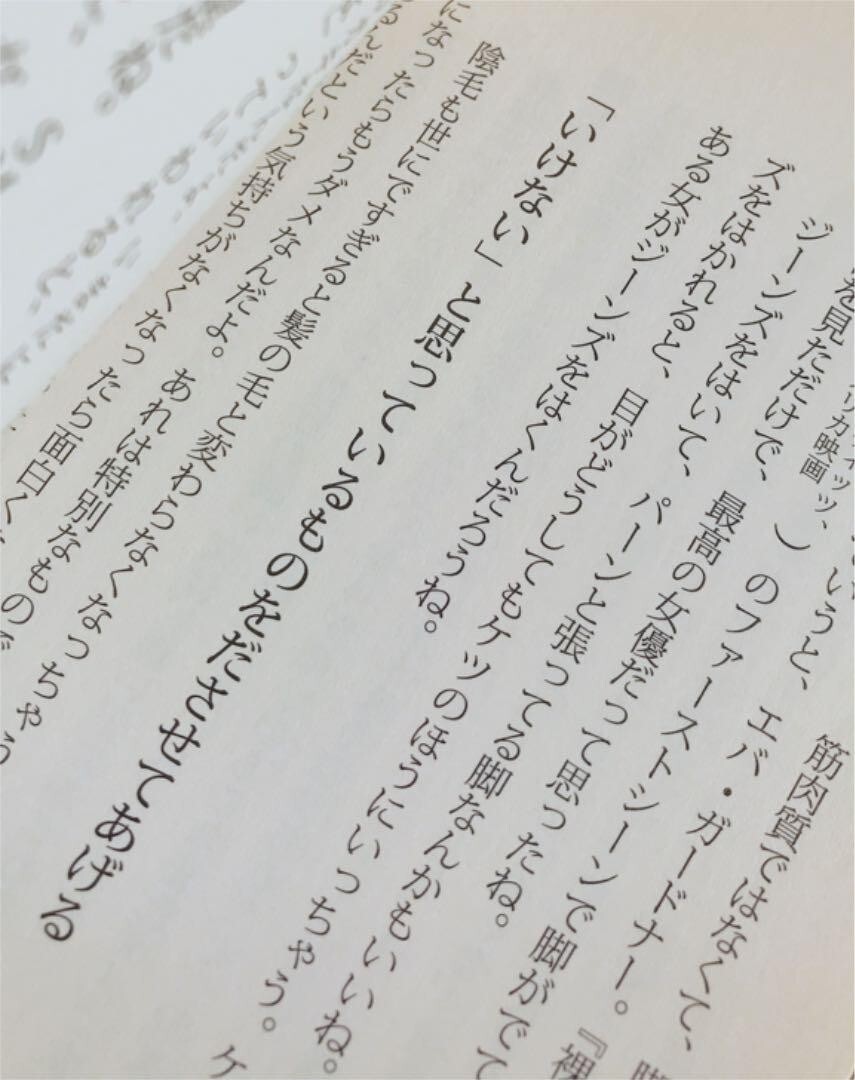 筋肉質ではなくて、脚
いうと、エバ・ガードナー。『裸
ィッツ、
リカ映画
)のファーストシーンで脚がでて
を見ただけで、最高の女優だって思ったね。
ジーンズをはいて、パーンと張ってる脚なんかもいいね。
ズをはかれると、目がどうしてもケツのほうにいっちゃう。ケ
ある女がジーンズをはくんだろうね。
「いけない」と思っているものをださせてあげる
陰毛も世にですぎると髪の毛と変わらなくなっちゃう
になったらもうダメなんだよ。あれは特別なものだ
るんだという気持ちがなくなったら面白く